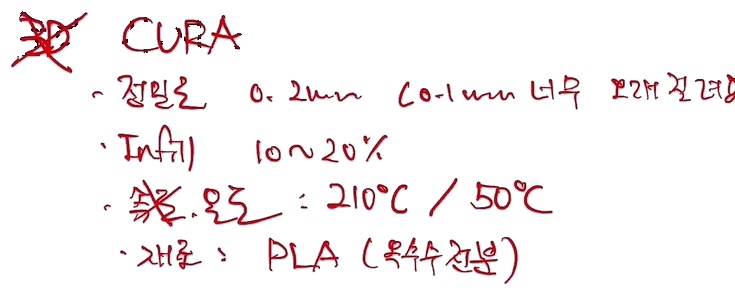 CURA
· 정밀도 0.2mm (0.1mm 너무 오래걸려요
· Infill 10~20%
· 온도 : 210°C / 50°C
· 재료 : PLA (옥수수전분)